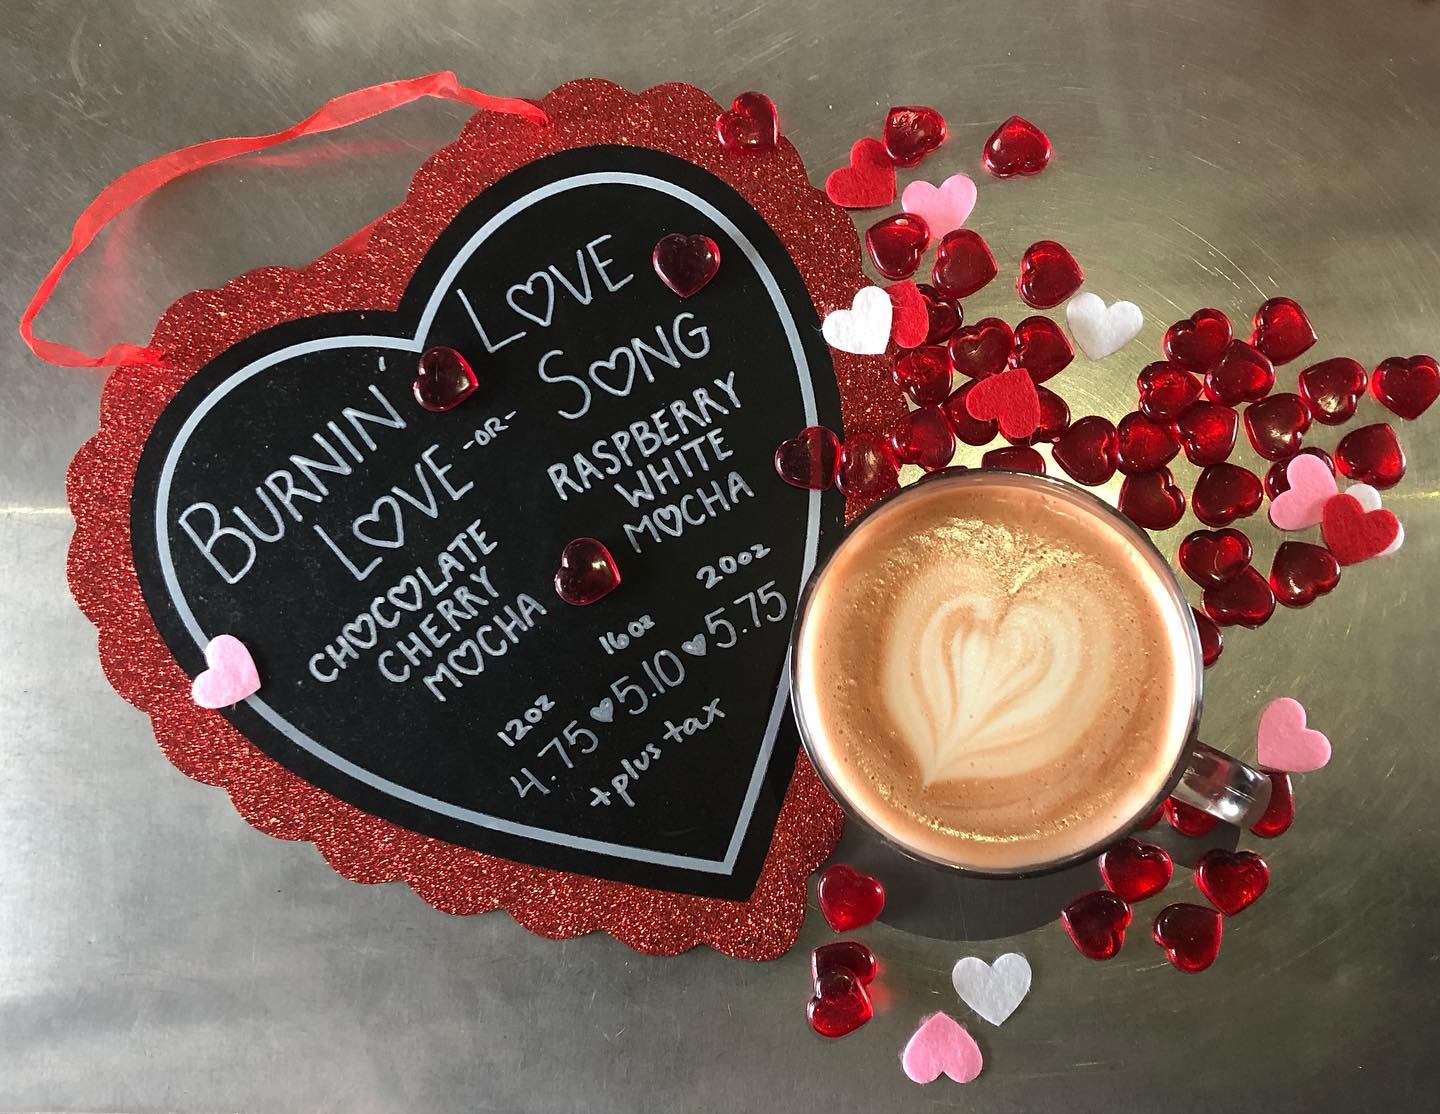 BURNIN'
LOVE
-OR-
LOVE
SONG
CHOCOLATE
CHERRY
MOCHA
RASPBERRY
WHITE
MOCHA
12oz 16oz 20oz
4.75 ♥ 5.10 ♥ 5.75
+plus tax